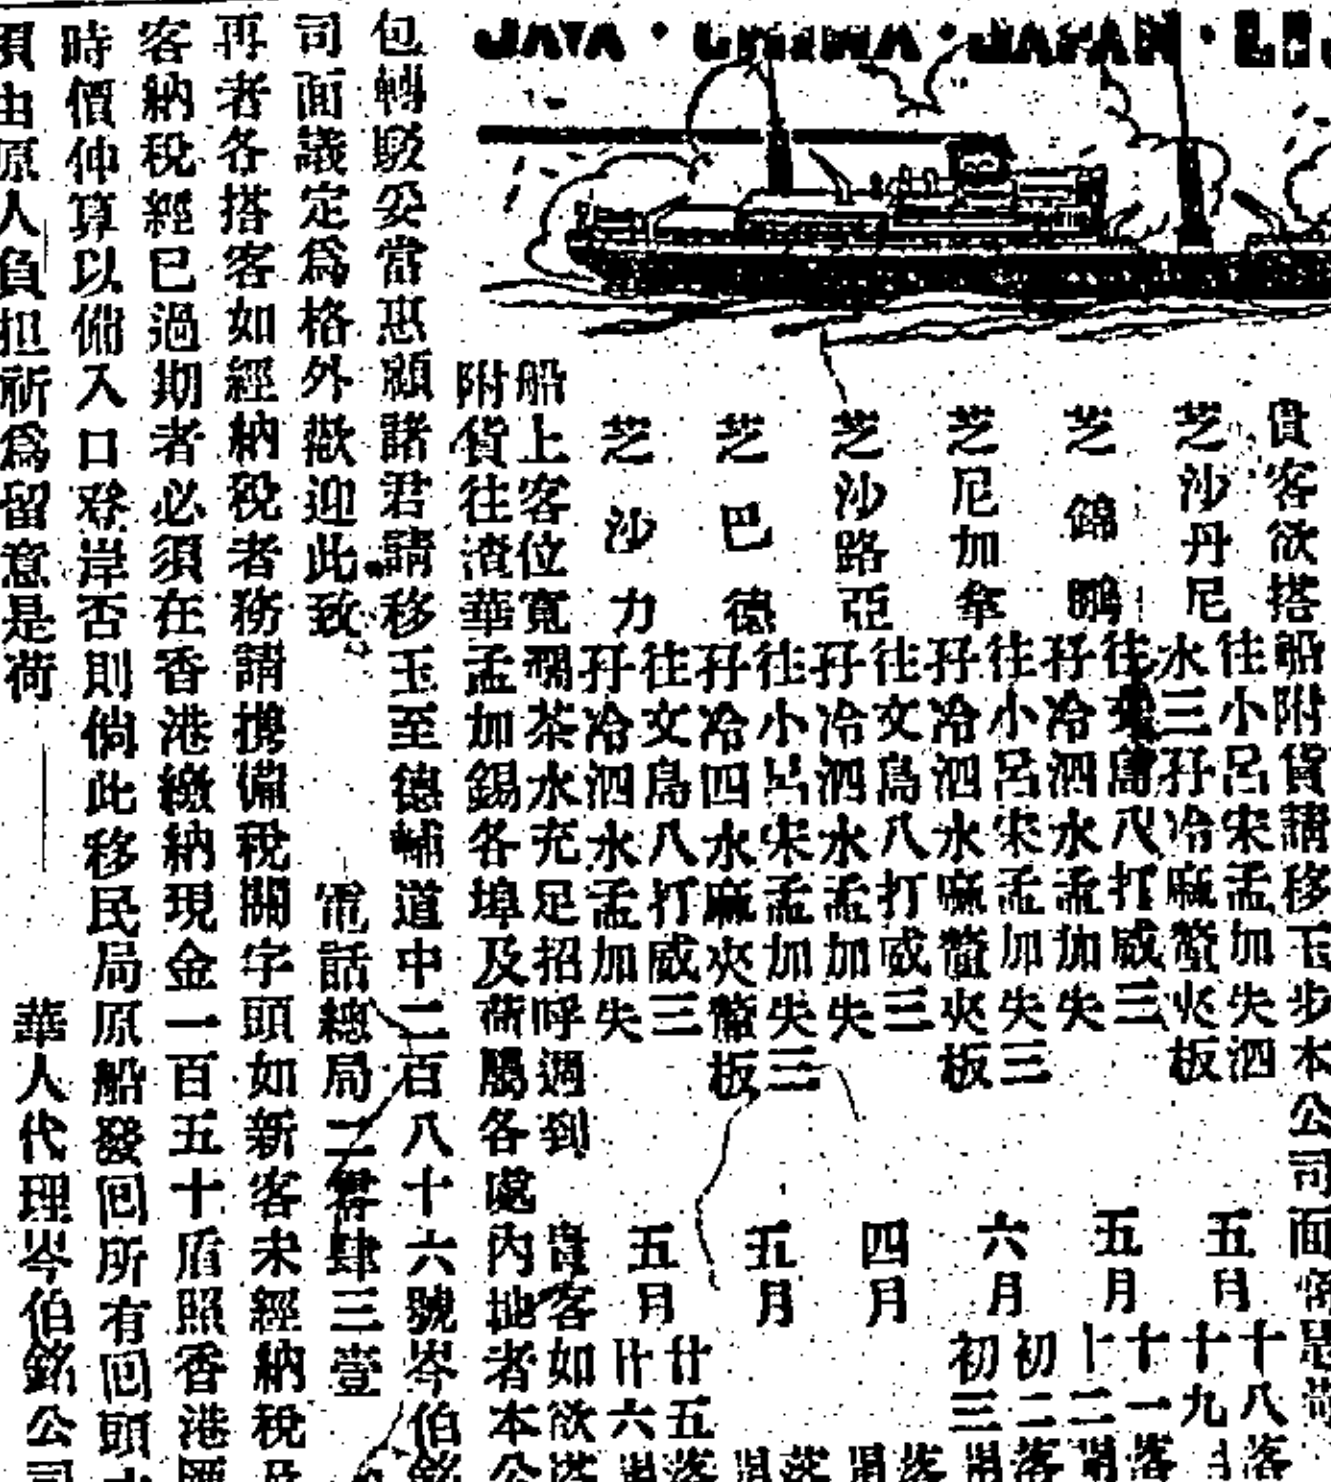 JAVA · CHINA · JAPAN · LI
貴客欲搭船附貨請移玉步本公司面
芝沙丹尼
往小呂宋孟加失泗
水三孖冷麻簷夾板
五月
十八
十九
芝錦鵰
往文島八打威三
孖冷泗水孟加失
五月
十一
十二
芝尼加拿
往小呂宋孟加失三
孖冷泗水麻簷夾板
六月
初二
初三
芝沙路亞
往文島八打威三
孖冷泗水孟加失
四月
芝巴德
往小呂宋孟加失三
孖冷四水麻夾簷板
五月
芝沙力
往文島八打威三
孖冷泗水孟加失
五月
廿五
廿六
船上客位寬闊茶水充足招呼週到
貴客如欲
附貨往渣華孟加錫各埠及荷屬各處內地者本公
包轉駁妥當惠顧諸君請移玉至德輔道中二百八十六號岑伯銘
司面議定爲格外歡迎此致
電話總局二零肆三壹
再者各搭客如經納稅者務請携備稅關字頭如新客未經納稅及
客納稅經已過期者必須在香港繳納現金一百五十盾照香港匯
時價伸算以備入口登岸否則倘此移民局原船發囘所有囘頭
須由原人負担祈爲留意是荷
華人代理岑伯銘公司